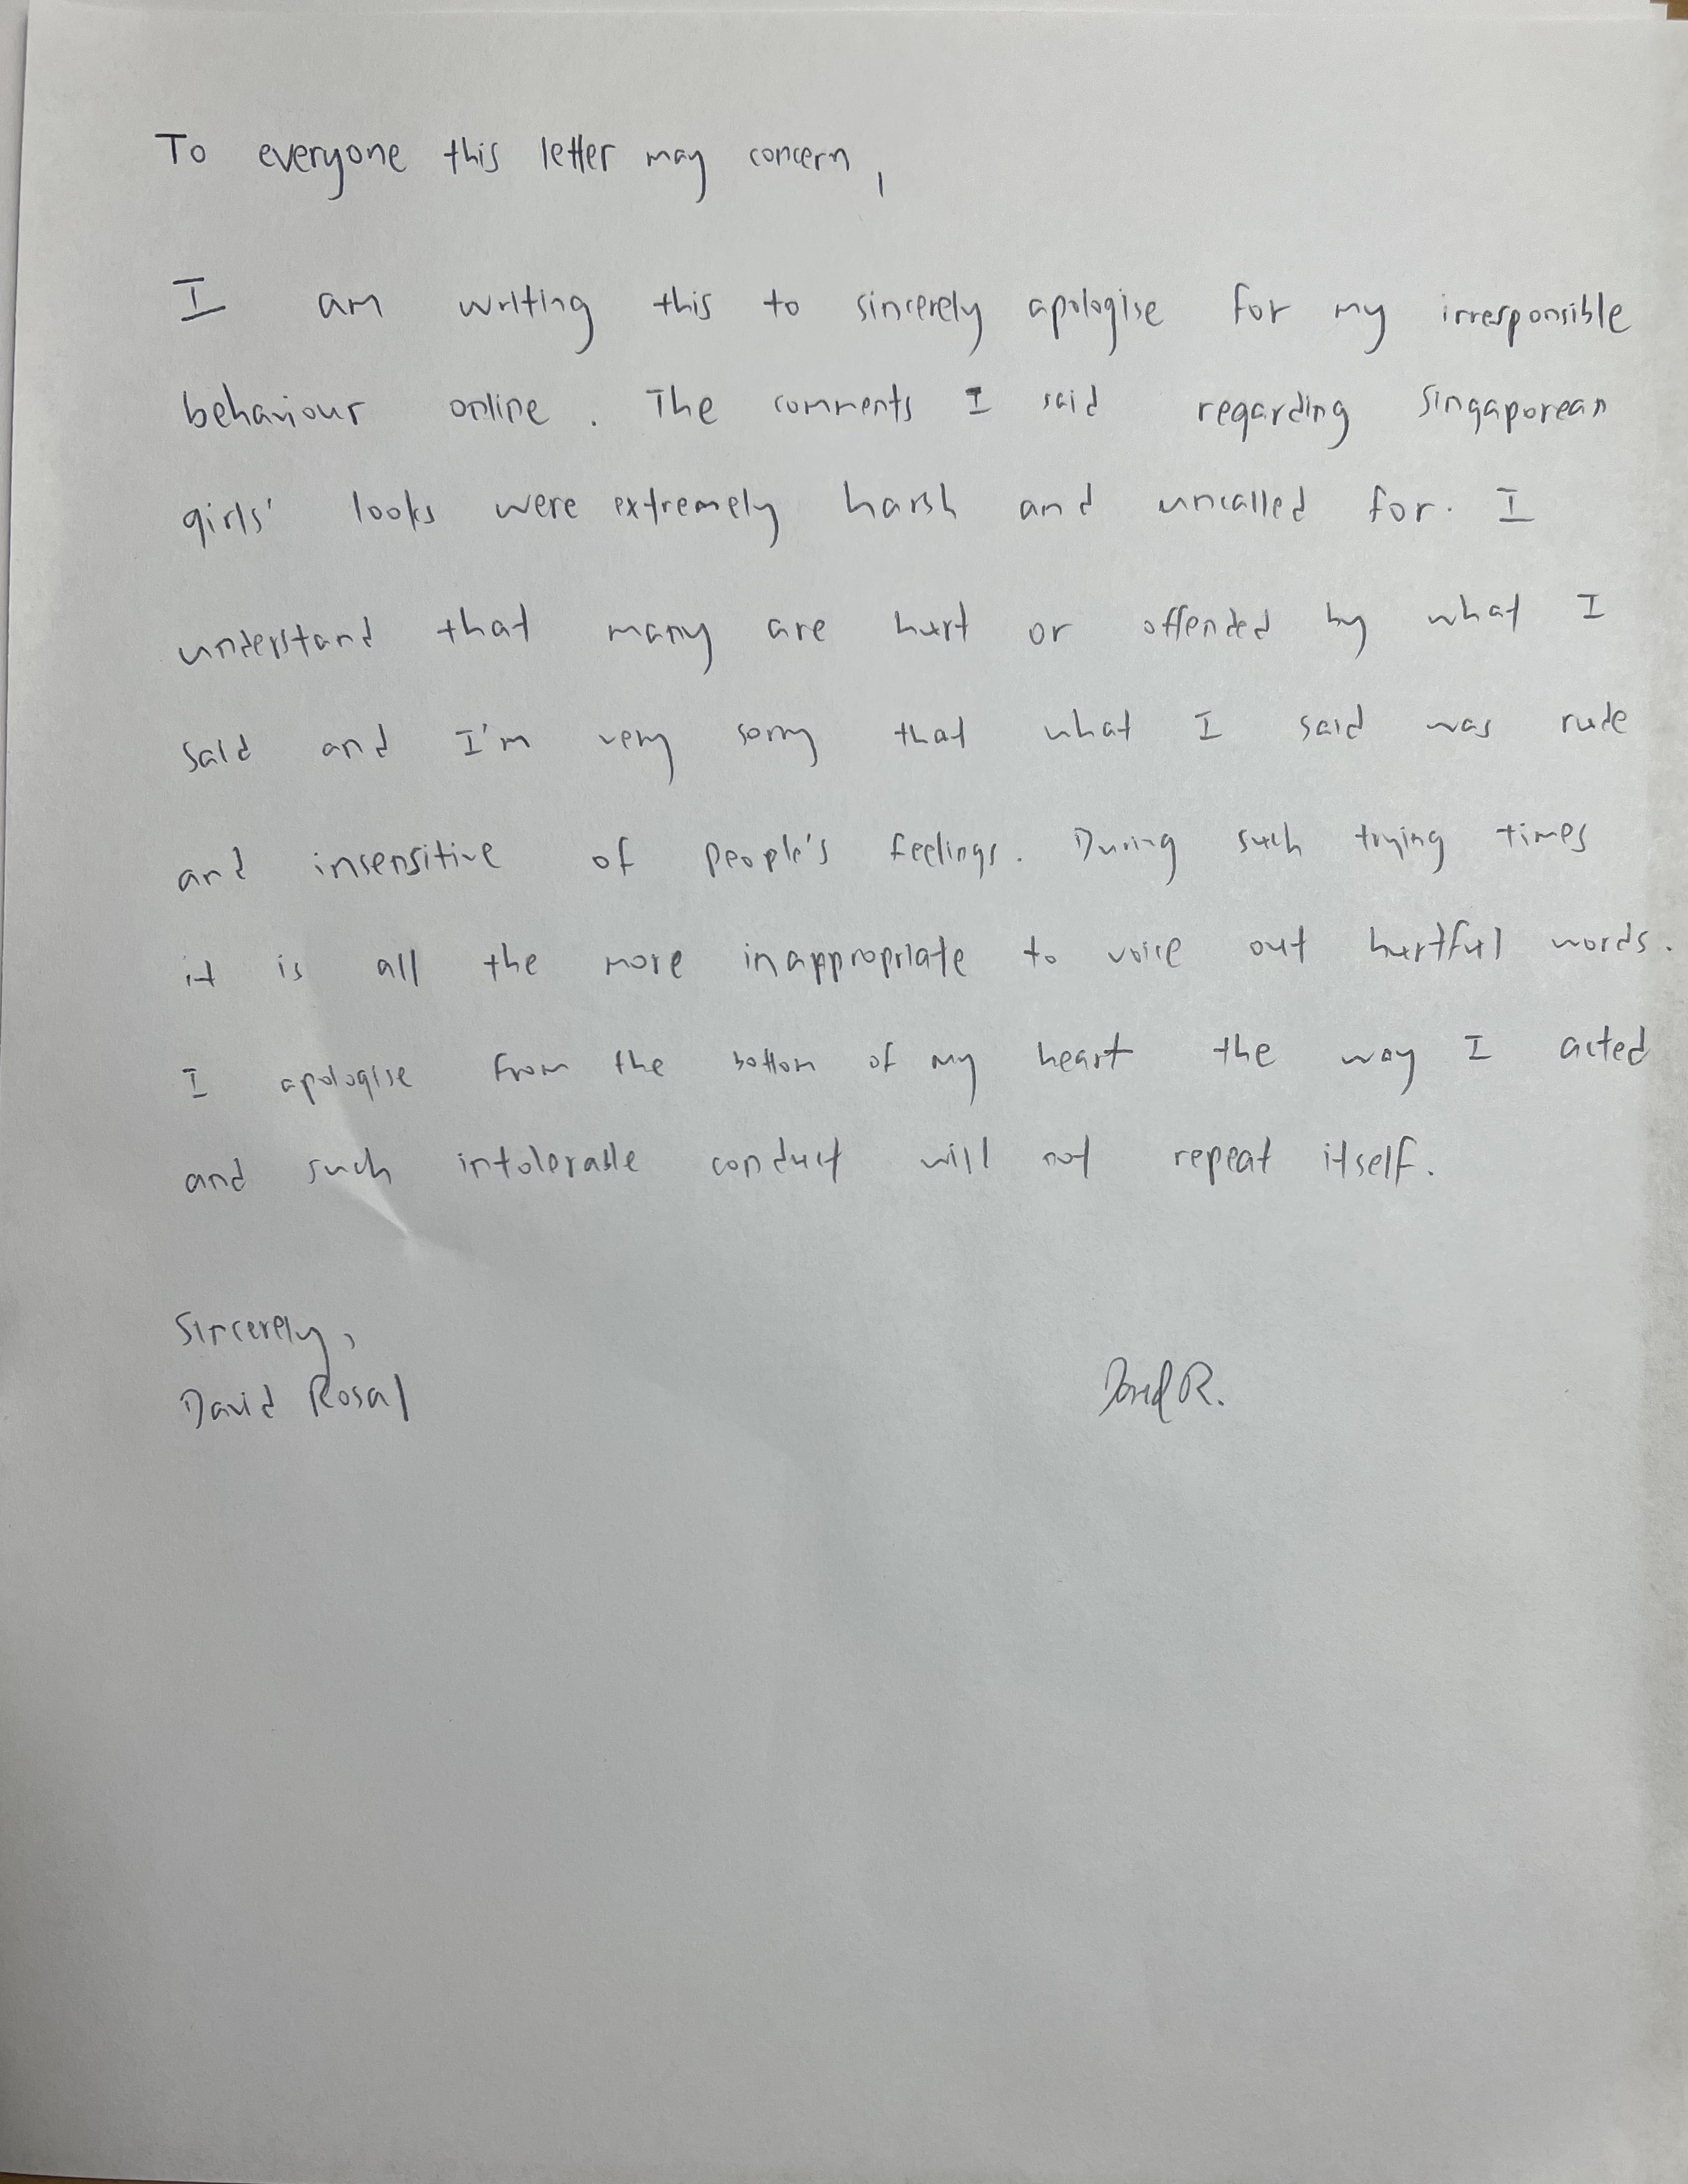 To everyone this letter may concern,
I am writing this to sincerely apologise for my irresponsible
behaviour online. The comments I said regarding Singaporean
girls' looks were extremely harsh and uncalled for. I
understand that many are hurt or offended by what I
said and I'm very sorry that what I said was rude
and insensitive of people's feelings. During such trying times
it is all the more inappropriate to voice out hurtful words.
I apologise from the bottom of my heart the way I acted
and such intolerable conduct will not repeat itself.
Sincerely,
David Rosal
David R.